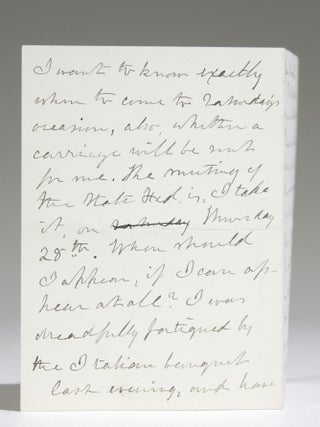 I want to know exactly
when to come to Saturday's
occasion, also, whether a
carriage will be sent
for me. The meeting of
the State Fed. is, I take
it, on Saturday Thursday
28th. When should
I appear, if I can ap-
pear at all? I was
dreadfully fatigued by
the Italian banquet
last evening, and have